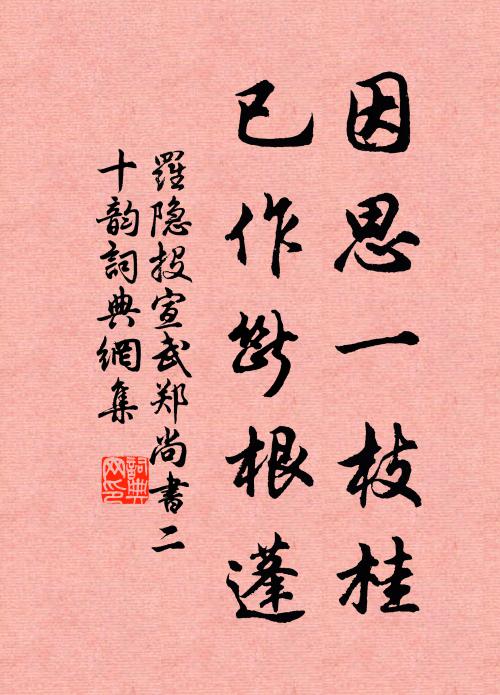 因思一枝桂
已作斷根蓬
羅隐投宣武郑尚書二
十韵詞典網集
詞典网印